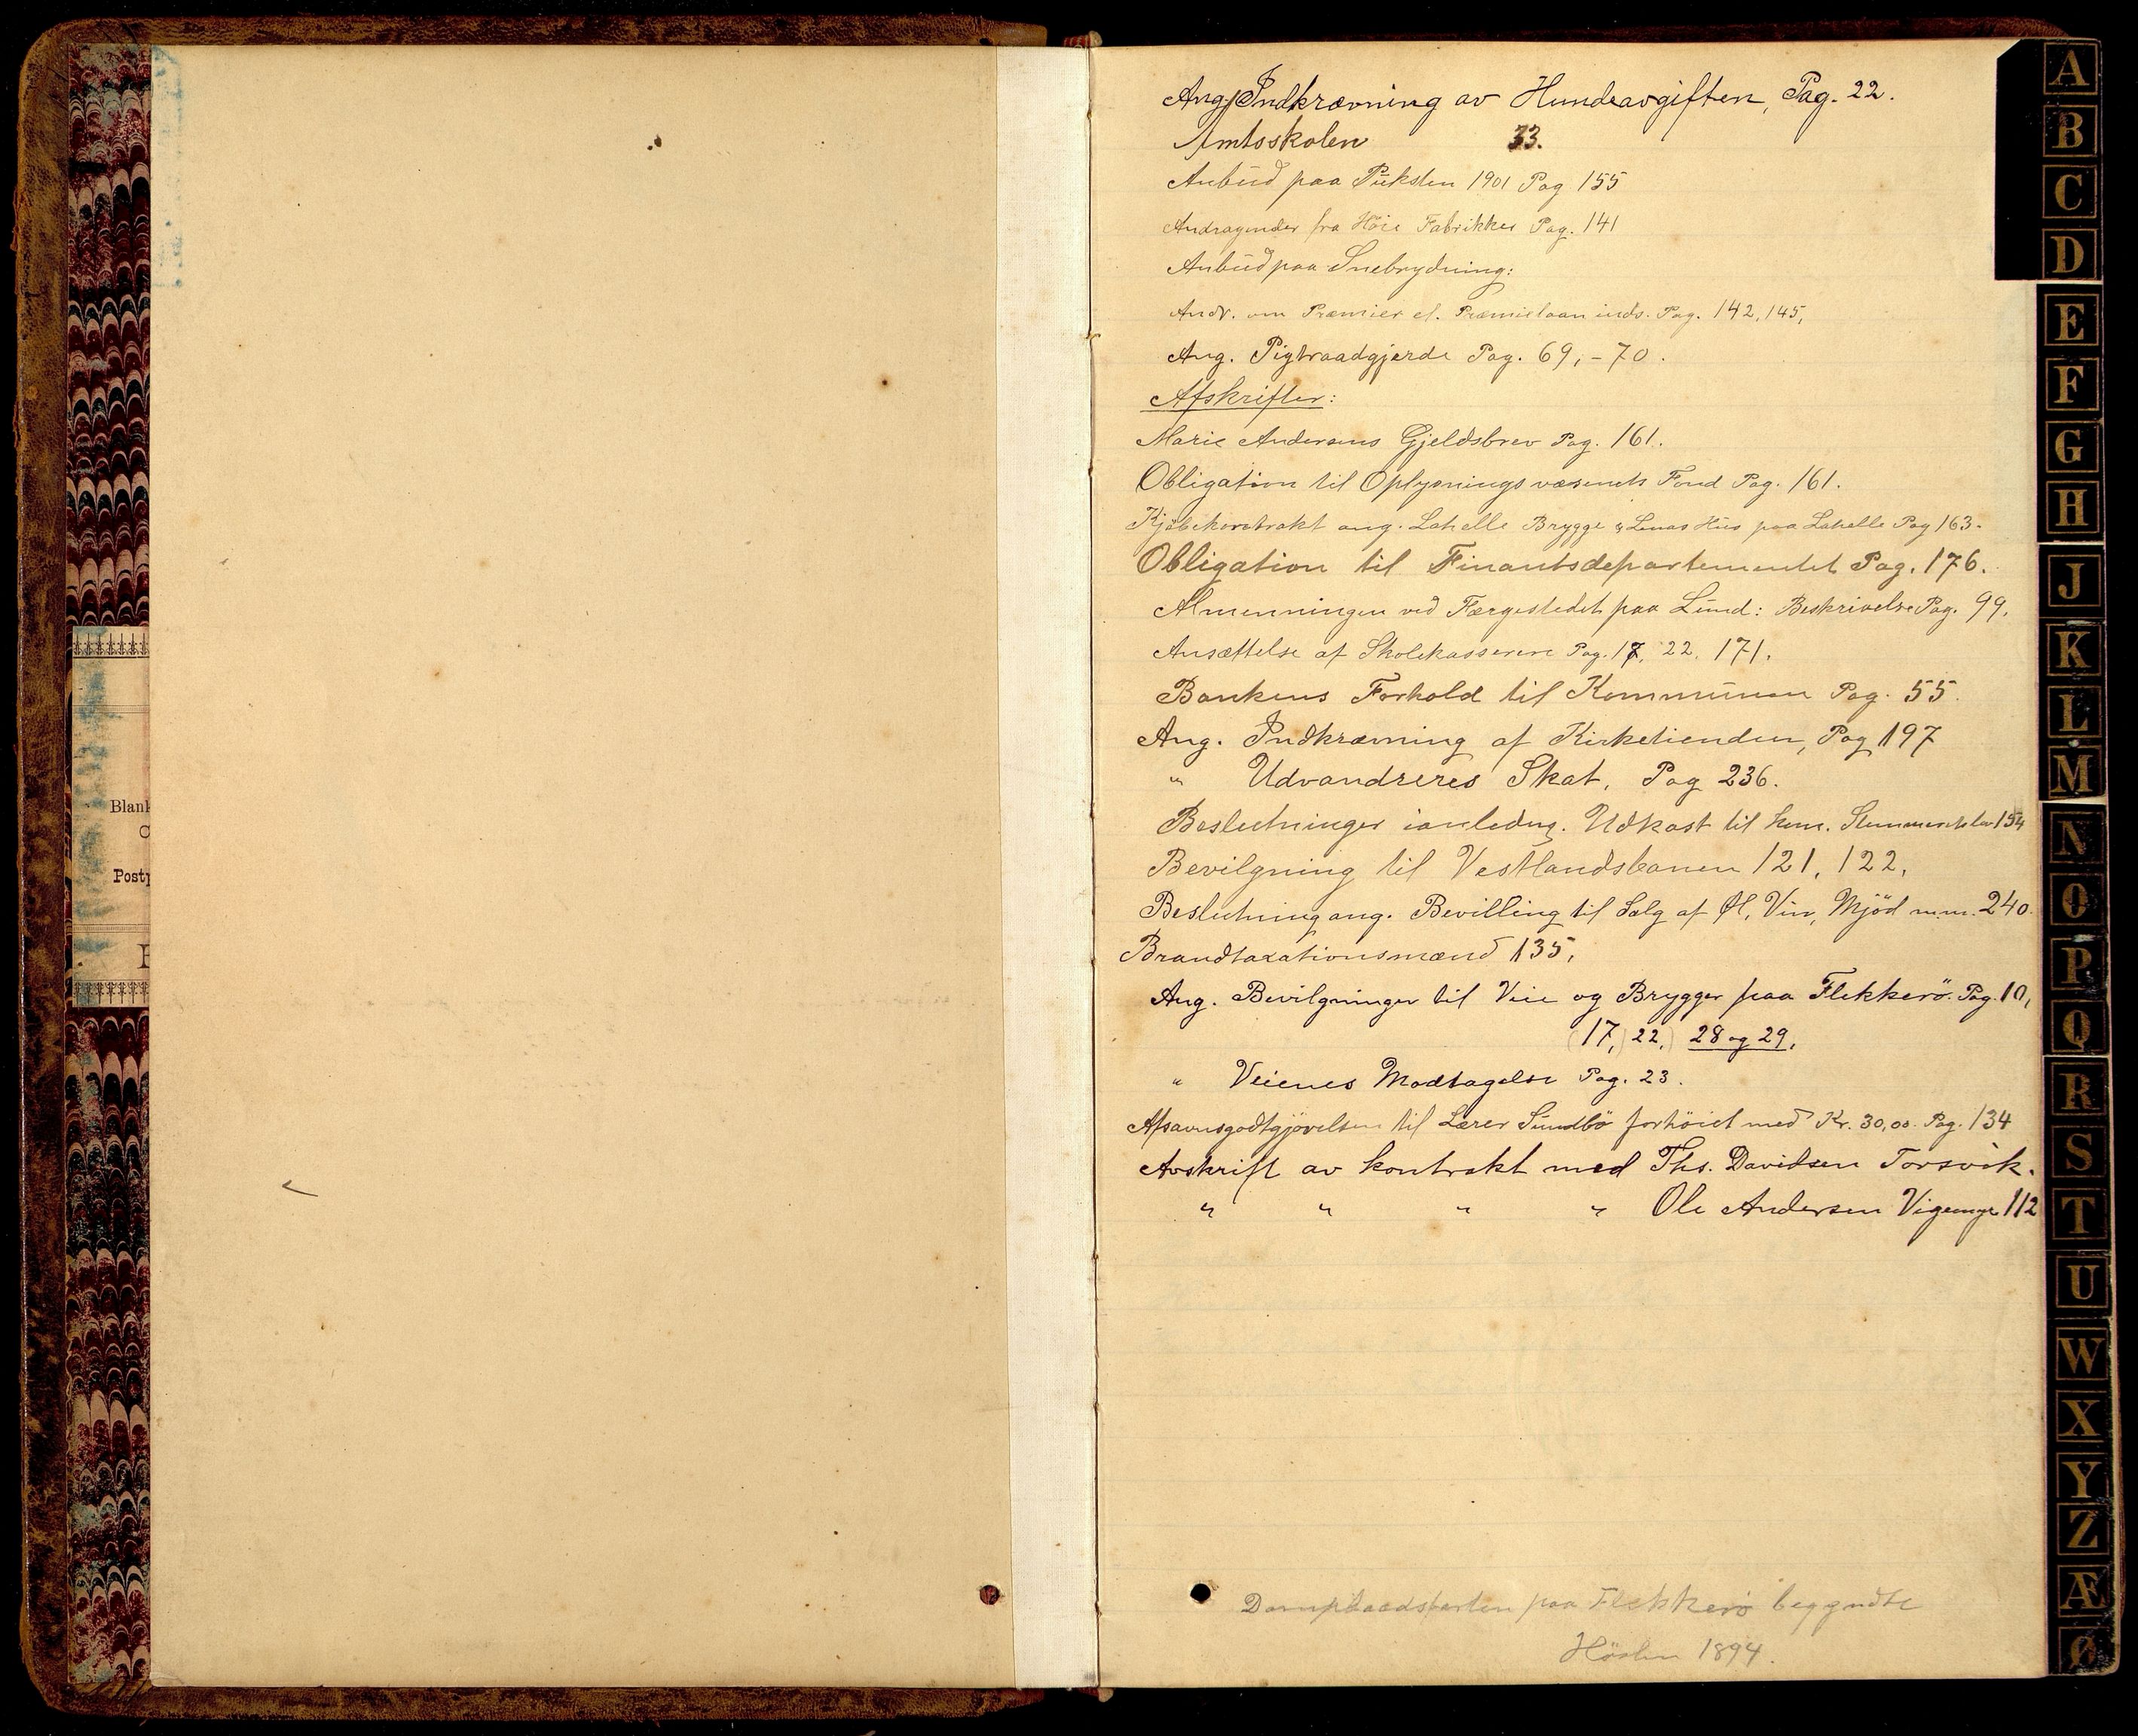 Ang. Indkrævning av Hundeavgiften, Pag. 22.
Amtsskolen 33.
Anbud paa Puksten 1901 Pag 155
Andragender fra Höie Fabrikker Pag. 141
Anbud paa Snebrydning:
Andr. om Præmier el. Præmielaan inds. Pag. 142, 145,
Ang. Pigtraadgjerde Pag. 69, - 70.
Afskrifter:
Marie Andersens Gjeldsbrev Pag. 161.
Obligation til Oplysningsvæsenets Fond Pag. 161.
Kjöbekontrakt ang. Lahelle Brygge & Lenas Hus paa Lahelle Pag 163.
Obligation til Finantsdepartementet Pag. 176.
Almenningen ved Færgestedet paa Lund: Beskrivelse Pag. 99.
Ansættelse af Skolekasserere Pag. 17, 22, 171.
Bankens Forhold til Kommunen Pag. 55.
Ang. Indkrævning af Kirketienden, Pag 197
" Udvandreres Skat, Pag 236.
Beslutninger ianledng. Udkast til kom. 154
Bevilgning til Vestlandsbanen 121, 122,
Beslutning ang. Bevilling til Salg af Øl, Vin, Mjöd m.m. 240.
Brandtaxationsmænd 135,
Ang. Bevilgninger til Veie og Brygger paa Flekkerö. Pag. 10,
(17,) 22,) 28 og 29,
" Veienes Modtagelse Pag. 23.
Afsavnsgodtgjörelsen til Lærer Sundbö forhöiet med Kr. 30,00. Pag. 134
Avskrift av kontrakt med Ths. Davidsen Torsvik.
" " " " Ole Andersen Vigemyr 112
paa Flekkerö begyndte
Hösten 1894.
Blank
C
Postp
F
A
B
C
D
E
F
G
H
J
K
L
M
N
O
P
Q
R
S
T
U
W
X
Y
Z
Æ
Ø